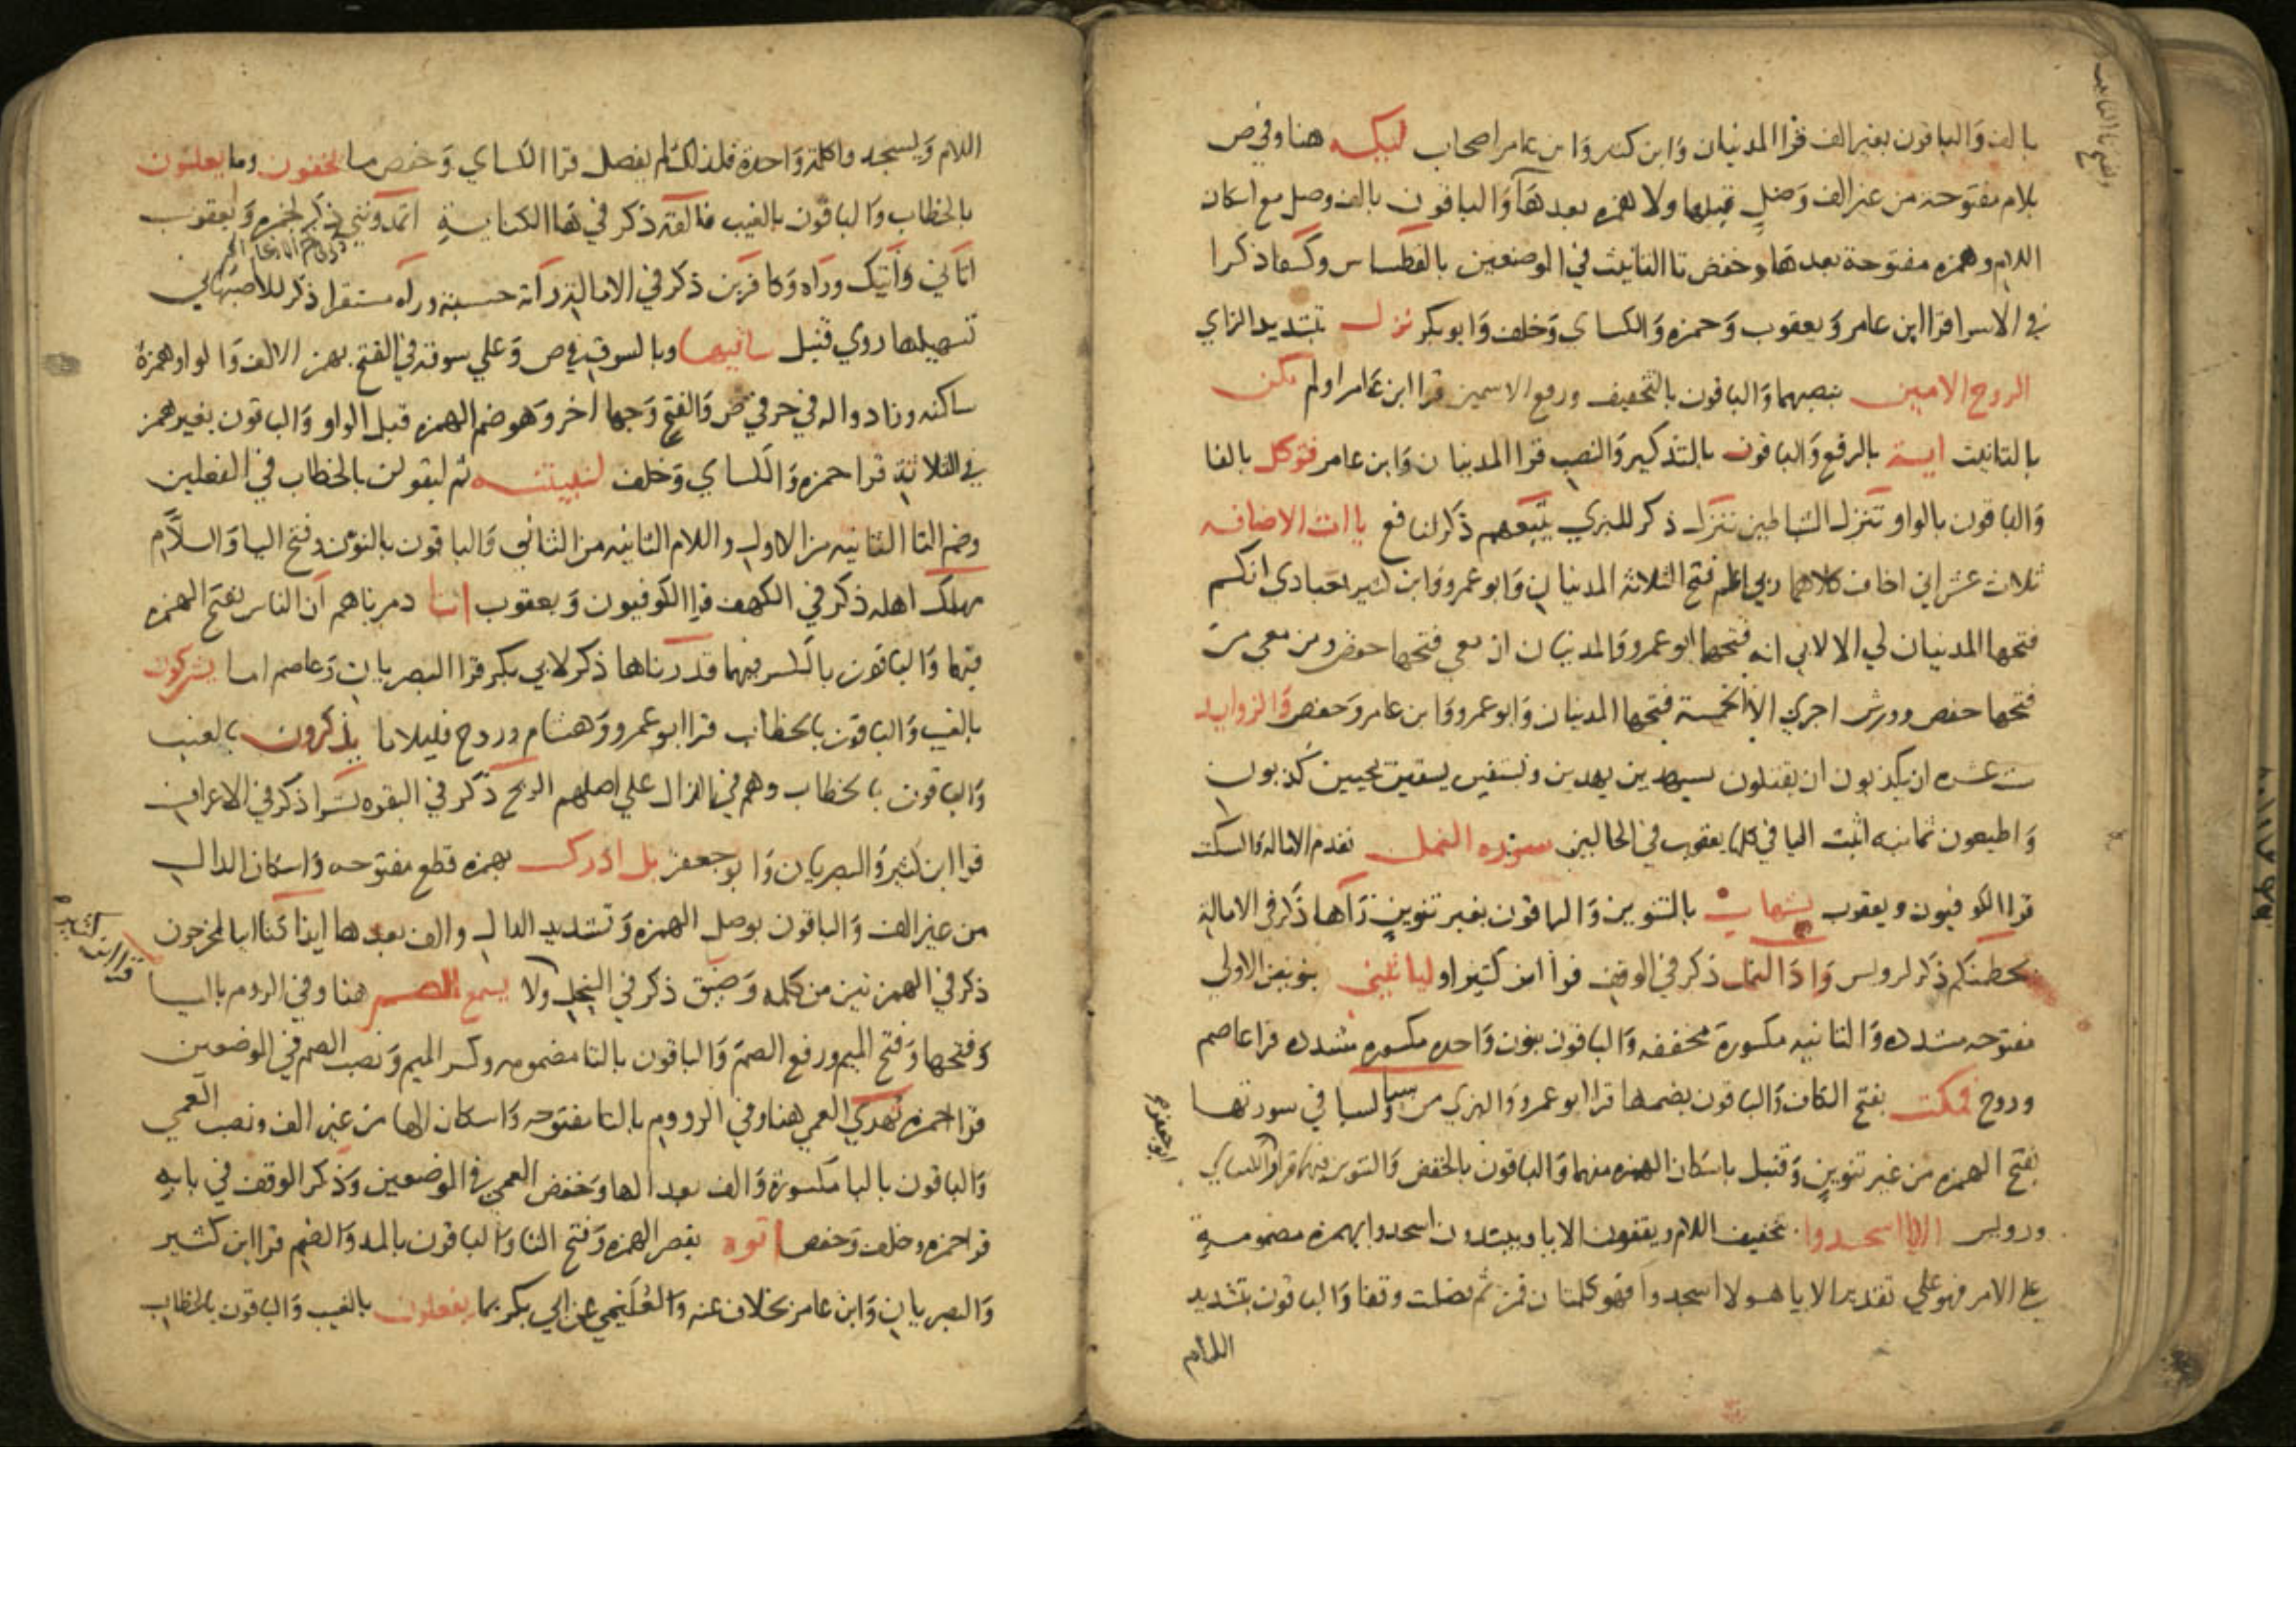 بالف والباقون بغير الف قرا المدنيان وابن كثير وابن عامر اصحاب ليكه هنا وفي ص
بلام مفتوحة من غير الف وصل قبلها ولا همزه بعدها والباقون بالف وصل مع اسكان
اللام وهمزه مفتوحة بعدها وخفض تا التانيث في الموضعين بالقسطاس وكسفا ذكرا
في الاسرا قرا ابن عامر ويعقوب وحمزه والكساي وخلف وابو بكر نزل بتشديد الزاي
الروح الامين بنصبهما والباقون بالتخفيف ورفع الاسمين قرا ابن عامر اولم تكن
بالتانيث اية بالرفع والباقون بالتذكير والنصب قرا المدنيان وابن عامر فتوكل بالفا
والباقون بالواو تنزل الشياطين تنزل ذكر للبزي يتبعهم ذكر لنافع ياات الاضافه
ثلاث عشر اني اخاف كلاهما ربي اعلم فتح الثلاثة المدنيان وابو عمرو وابن كثير بعبادي انكم
فتحها المدنيان لي الا لابي انه فتحها ابو عمرو والمدنيان ان معي فتحها حفص ومن معي من
فتحها حفص وورش اجري الا الخمسة فتحها المدنيان وابو عمرو وابن عامر وحفص والزوايد
ست عشره ان يكذبون ان يقتلون سيهدين يهدين ويسقين يشفين يحيين كذبون
واطيعون ثمانيه اثبت اليا في كلها يعقوب في الحالين سورة النمل تقدم الاماله والسكت
قرا الكوفيون ويعقوب بشهاب بالتنوين والباقون بغير تنوين رآها ذكر في الامالة
يحطمنكم ذكر لرويس واد النمل ذكر في الوقف قرا ابن كثير اولياتينني بنونين الاولي
مفتوحه مشدده والثانيه مكسورة مخففه والباقون بنون واحده مكسوره مشدده قرا عاصم
وروح فمكث بفتح الكاف والباقون بضمها قرا ابو عمرو والبزي من سبا ولسبا في سورتها
بفتح الهمزه من غير تنوين وقنبل باسكان الهمزه منهما والباقون بالخفض والتنوين فيهما قرا الكساي
ابو جعفر
ورويس الا يا اسجدوا بتخفيف اللام ويقفون الا يا ويبتدون اسجدوا بهمزه مضمومة
علي الامر فهو علي تقدير الا يا هولا اسجدوا فهو كلمتان فمن ثم فصلت وقفا والباقون بتشديد
اللام
اللام ويسجدوا كلمة واحدة فلذلك لم يفصل قرا الكساي وحفص ما تخفون وما يعلنون
بالخطاب والباقون بالغيب فالقه ذكر في ها الكناية اتمدونني ذكر لحمزه ويعقوب
اتاني واتيك ورآه وكافرين ذكر في الامالة رآته حسبته ورآه مستقرا ذكر للاصبهاني
تسهيلها روي قنبل ساقيها وبالسوق في ص وعلي سوقه في الفتح بهمز الالف والواو همزة
ساكنه وزاد واله في حرفي ص والفتح وجها اخر وهو ضم الهمزه قبل الواو والباقون بغير همز
في الثلاثة قرا حمزه والكساي وخلف لنبيتنه ثم ليقولن بالخطاب في الفعلين
وضم التا الثانيه من الاول واللام الثانيه من الثاني والباقون بالنون وفتح اليا واللام
مهلك اهله ذكر في الكهف قرا الكوفيون ويعقوب انا دمرناهم ان الناس بفتح الهمزه
فيهما والباقون بالكسر فيهما قدرناها ذكر لابي بكر قرا البصريان وعاصم اما يشركون
بالغيب والباقون بالخطاب قرا ابو عمرو وهشام وروح قليلا ما يذكرون بالغيب
والباقون بالخطاب وهم في الذال علي اصلهم الريح ذكر في البقره نشرا ذكر في الاعراف
قرا ابن كثير والبصريان وابو جعفر بل ادرك بهمزه قطع مفتوحه واسكان الدال
من غير الف والباقون بوصل الهمزه وتشديد الدال والف بعدها ايذا كنا اينا لمخرجون
قرا ابن كثير
ذكر في الهمزتين من كلمه وضيق ذكر في النحل ولا يسمع الصم هنا وفي الروم باليا
وفتحها وفتح الميم ورفع الصم والباقون بالتا مضمومه وكسر الميم ونصب الصم في الموضعين
قرا حمزه تهدي العمي هنا وفي الروم بالتا مفتوحه واسكان الها من غير الف ونصب العمي
والباقون بالبا مكسورة والف بعد الها وخفض العمي في الموضعين وذكر الوقف في بابه
قرا حمزه وخلف وحفص اتوه بقصر الهمزه وفتح التا والباقون بالمد والضم قرا ابن كثير
والبصريان وابن عامر بخلاف عنه والعليمي عن ابي بكر بما يفعلون بالغيب والباقون بالخطاب